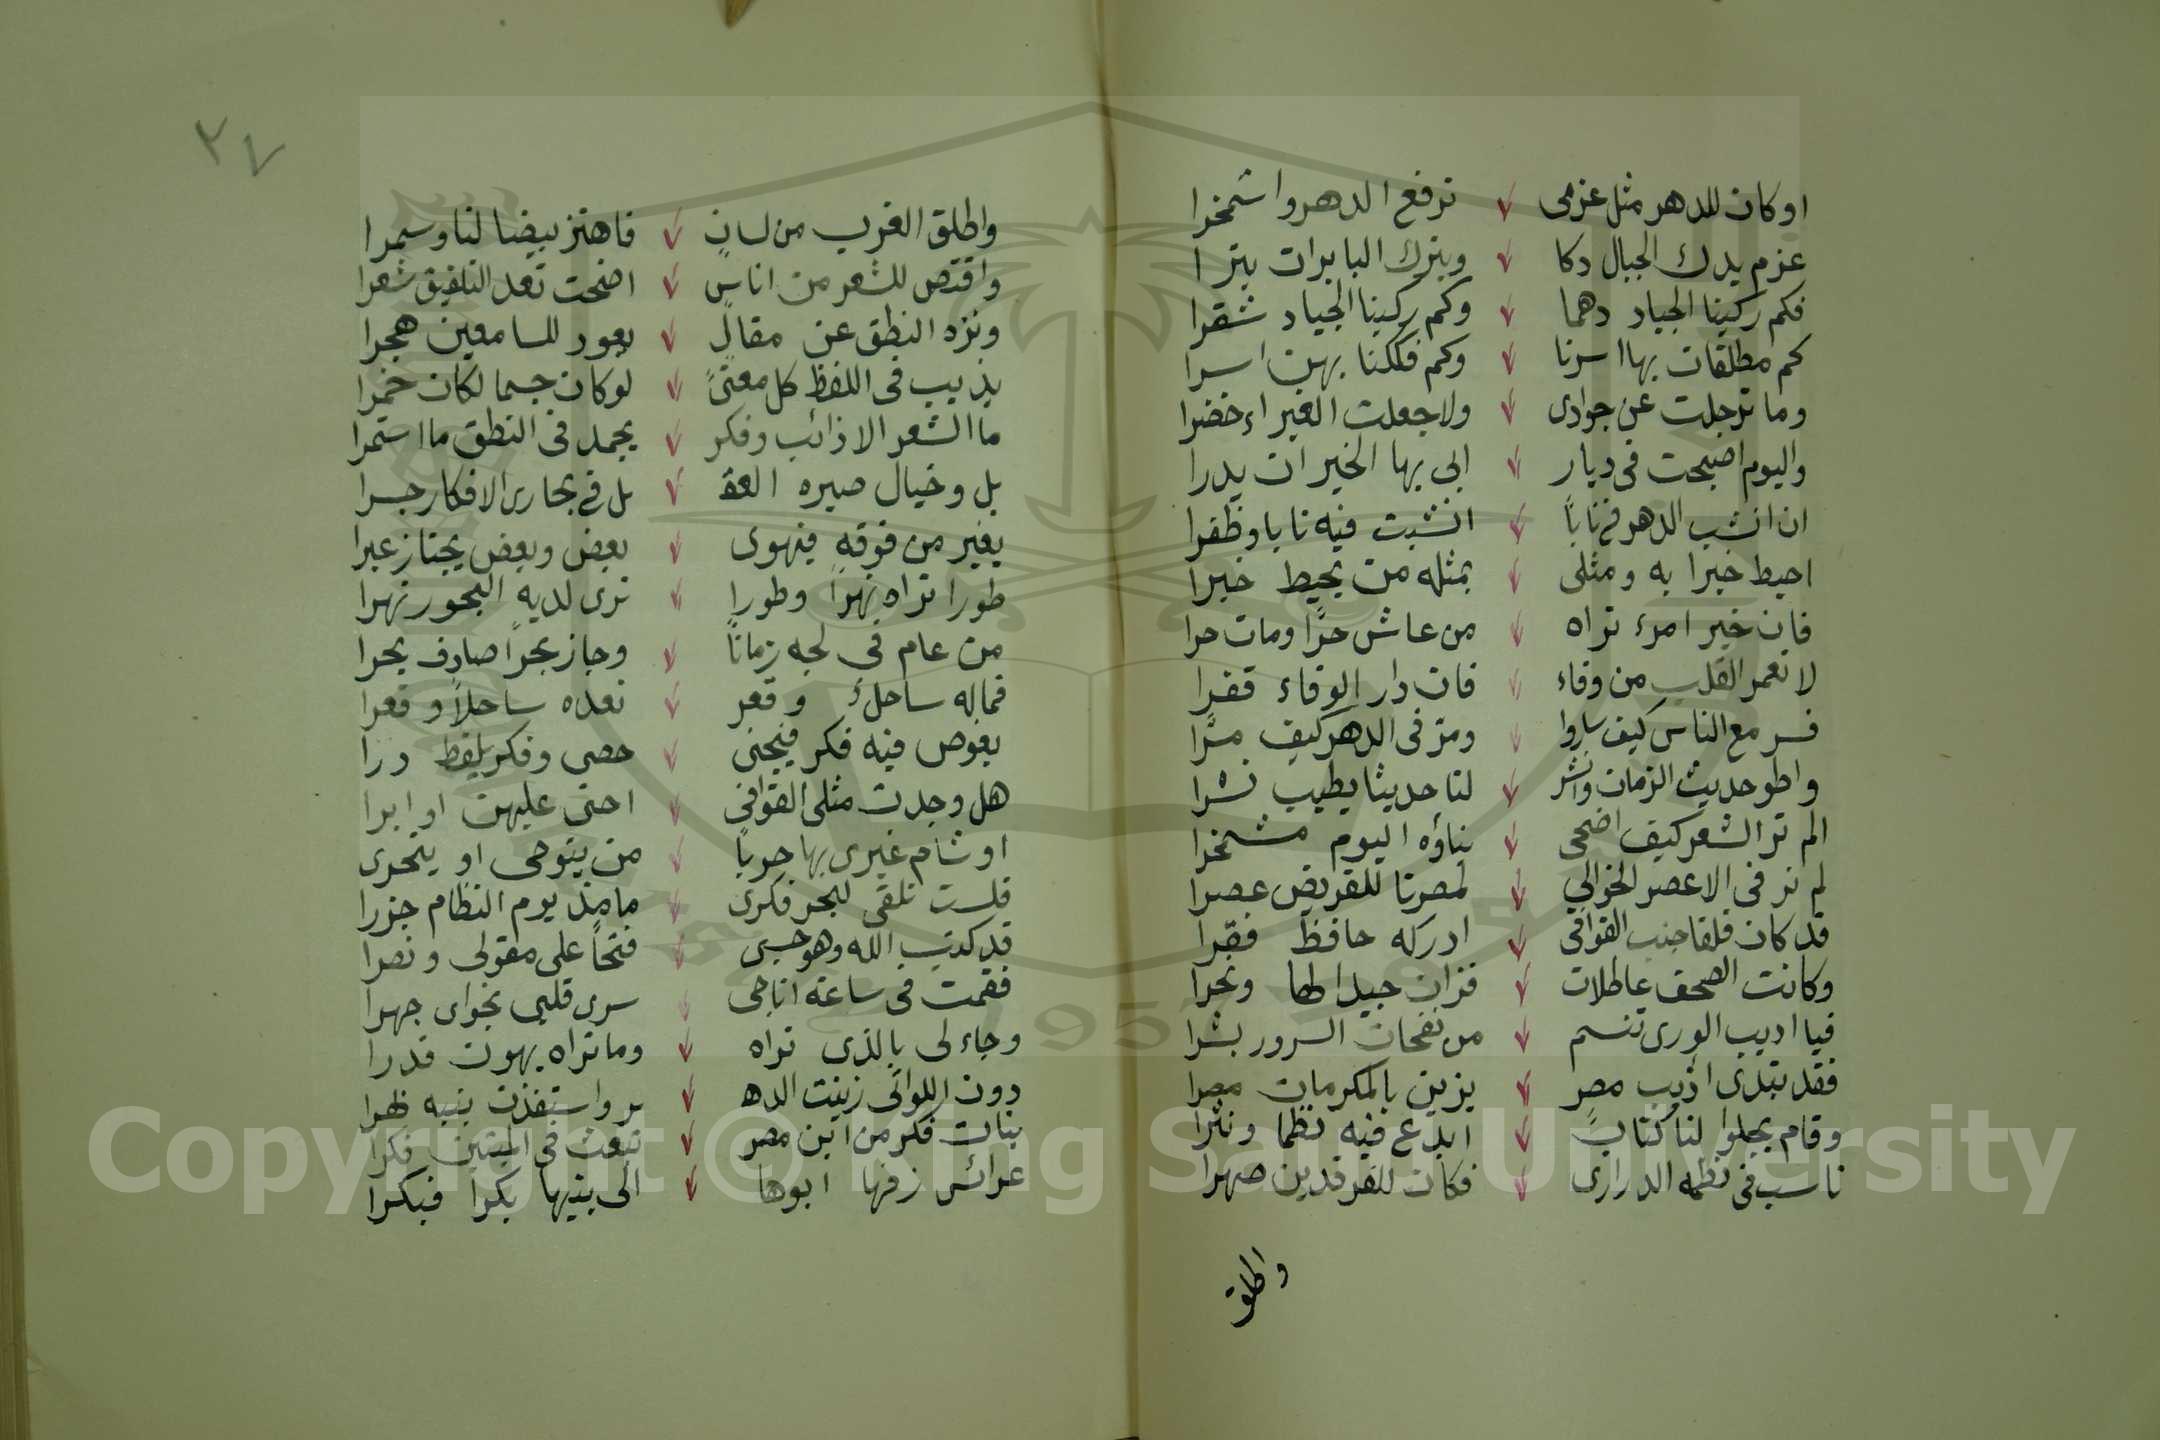 او كان للدهر مثل عزمى ترفع الدهر واشمخرا
عزم يدك الجبال دكا ويترك البابرات بترا
فكم ركبنا الجياد دهما وكم ركبنا الجياد شقرا
كم مطلقات بها اسرنا وكم فككنا بهن اسرا
وما ترجلت عن جوادى ولا جعلت الغبراء خضرا
واليوم اصبحت فى ديار ابى بها الخير ان يدرا
ان انشب الدهر فيّ ناباً انشبت فيه نابا وظفرا
احيط خبرا به ومثلى بمثله من يحيط خبرا
فان خير امرء تراه من عاش حرًا ومات حرا
لا تعمر القلب من وفاء فان دار الوفاء قفرا
فسر مع الناس كيف ساروا ومرّ فى الدهر كيف مرّا
واطو حديث الزمان وانشر لنا حديثا يطيب نشرا
الم تر الشعر كيف اضحى بناؤه اليوم مشمخرا
لم نر فى الاعصر الخوالي لمصرنا للقريض عصرا
قد كان قلقا جنب القوافى ادركه حافظ فقرا
وكانت الصحف عاطلات فزان جيدا لها ونحرا
فيا اديب الورى تنسم من نفحات السرور بشرا
فقد تبدى اديب مصر يزين بالمكرمات مصرا
وقام يجلوا لنا كتاباً ابدع فيه نظما ونثرا
ناسب فى نظمه الدرارى فكان للفرقدين صهرا
واطلق
٢٧
واطلق الغرب من لسانٍ فاهتز بيضا لنا وسمرا
واقتص للشعر من اناسٍ اضحت تعد التلفيق شعرا
ونزه النطق عن مقالٍ يعود للسامعين هجرا
يذيب فى اللفظ كل معنىً لو كان جسما لكان خمرا
ما الشعر الا ذائب وفكر يجمد فى النطق ما استمرا
بل وخيال صيره العقـ ـل في مجارى الافكار جسرا
يغير من فوقه فيهوى بعض وبعض يجتاز عبرا
طورا تراه نهراً وطورا ترى لديه البحور نهرا
من عام فى لجه زماناً وجاز بحراً صادف بحرا
فماله ساحلٌ وقعر نعده ساحلاً وقعرا
يغوص فيه فكر فيجنى حصى وفكر يلقط درا
هل وجدت مثلى القوافى احنى عليهن او ابرا
او شام غيرى بها حوباً من يتوخى او يتحرى
فلست تلقى لبحر فكرى ما مذ يوم النظام جزرا
قد كتب الله وهو حسبى فتحاً على مقولى ونصرا
فقمت فى ساعة اناجى سرى قلبى نجواى جهرا
وجاء لى بالذى تراه وما تراه يهون قدرا
دون اللواتى زينت الدهـ ـر واستنفذت بنيه ظهرا
بنات فكر من ابن مصر تبعث فى الميتين فكرا
عرائس زفها ابوها الى بنيها بكرا فبكرا